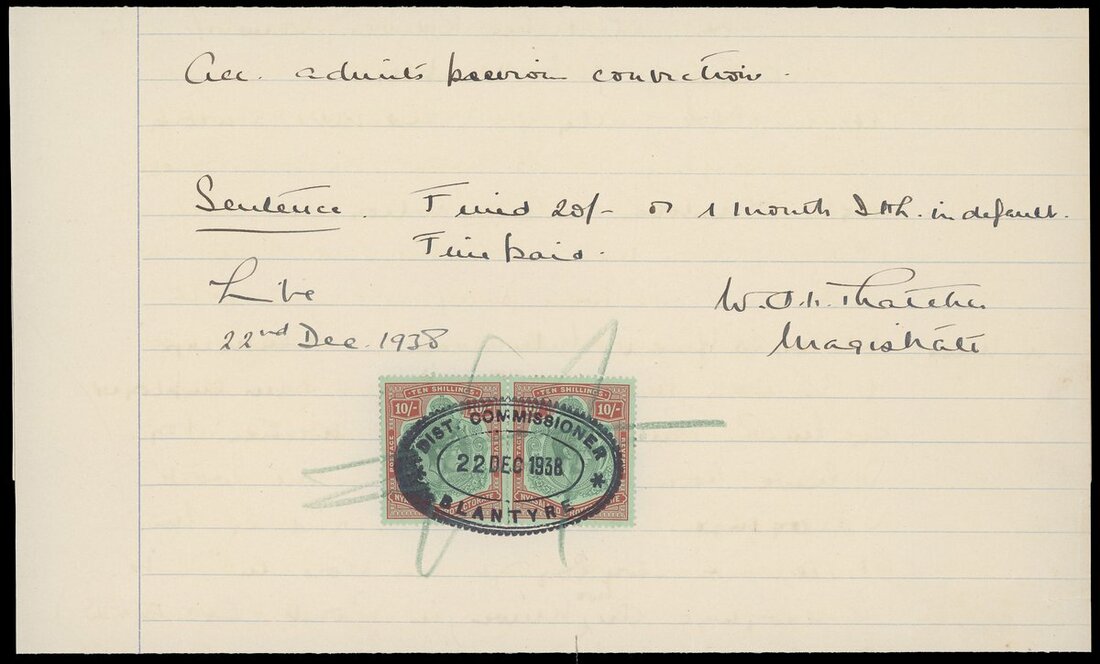 Acc. admits previous conviction.
Sentence. Fined 20/- or 1 month I H L. in default.
Fine paid.
Limbe
22nd Dec. 1938
Thatcher
Magistrate
TEN SHILLINGS TEN SHILLINGS
10/- 10/-
DIST. COMMISSIONER
22 DEC 1938
BLANTYRE